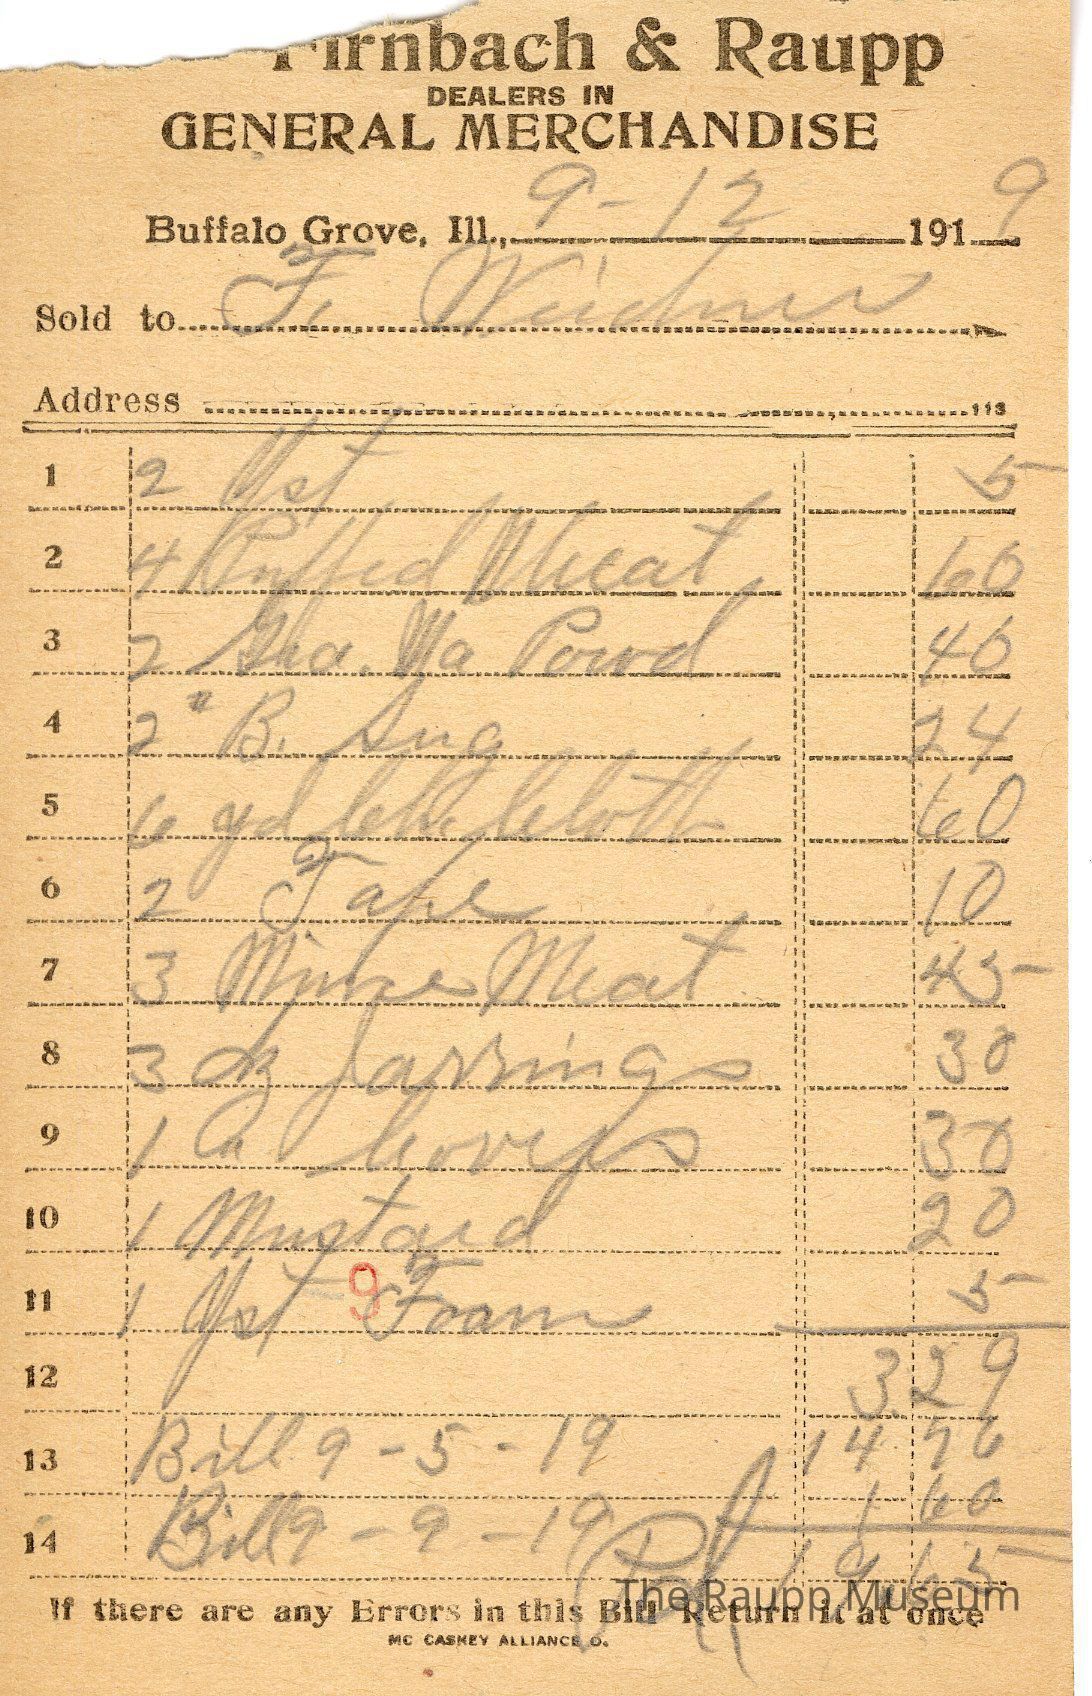 Firnbach & Raupp
DEALERS IN
GENERAL MERCHANDISE
Buffalo Grove, Ill., 9-12 1919
Sold to F. Weidner
Address 113
1 2 Yst 5
2 4 Puffed Wheat 60
3 2 Gho. Ya Powd 40
4 2 " B. Sug 24
5 6 yd Che. Cloth 60
6 2 Tape 10
7 3 Mince Meat 45
8 3 Jar Rings 30
9 1 Covers 30
10 1 Mustard 20
11 1 Yst Foam 5
9
12 3 29
13 Bill 9-5-19 14 76
14 Bill 9-9-19 1 60
Pd 19 65
If there are any Errors in this Bill Return it at once
MC CASKEY ALLIANCE O.
The Raupp Museum